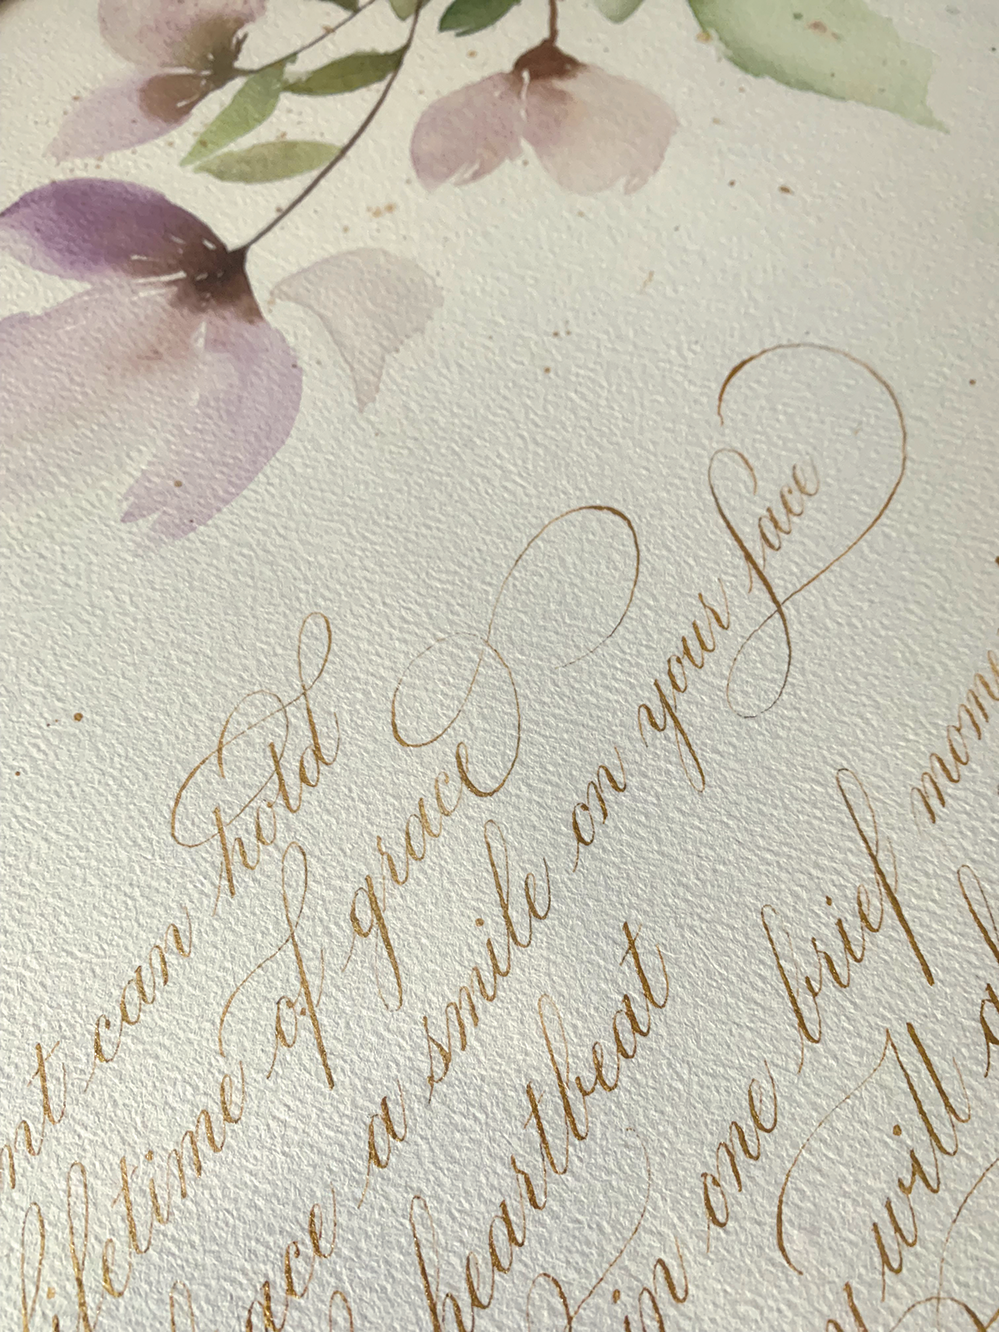 nt can hold
lifetime of grace
ace a smile on your face
heartbeat
in one brief mom
will